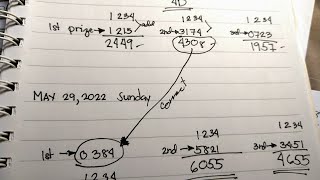 4D
1234 1234 1234
1st prize → 1215 add 2nd → 3174 3rd → 0723
2449 4308 1957
MAY 29, 2022 Sunday
correct
1234 1234
1st → 0384 2nd → 5821 3rd → 3451
1234 6055 4655